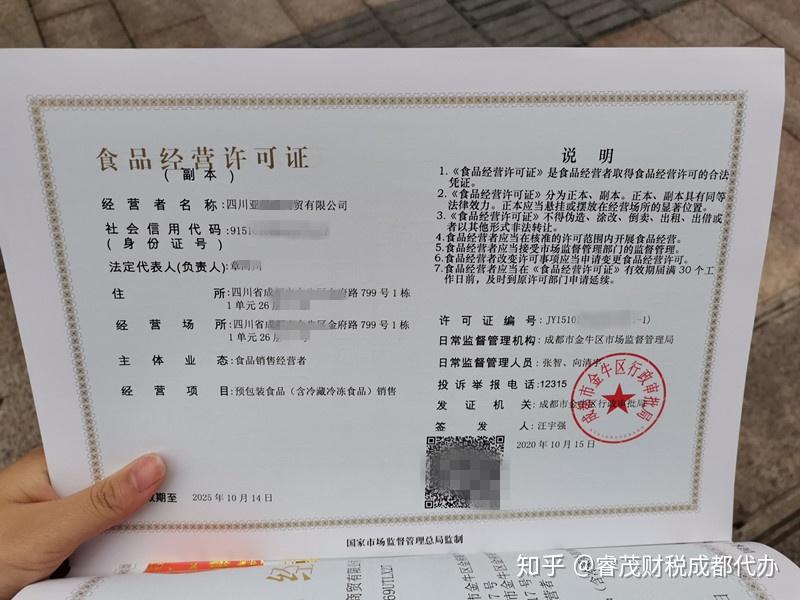 食品经营许可证
(副本)
经营者名称:四川亚 贸有限公司
社会信用代码:9151
(身份证号)
法定代表人(负责人):
住所:四川省成 路799号1栋
1单元26层
经营场所:四川省成都市金牛区金府路799号1栋
1单元26层
主体业态:食品销售经营者
经营项目:预包装食品(含冷藏冷冻食品)销售
效期至 2025年10月14日
说明
1.《食品经营许可证》是食品经营者取得食品经营许可的合法
凭证。
2.《食品经营许可证》分为正本、副本。正本、副本具有同等
法律效力。正本应当悬挂或摆放在经营场所的显著位置。
3.《食品经营许可证》不得伪造、涂改、倒卖、出租、出借或
者以其他形式非法转让。
4.食品经营者应当在核准的许可范围内开展食品经营。
5.食品经营者应当接受市场监督管理部门的监督管理。
6.食品经营者改变许可事项应当申请变更食品经营许可。
7.食品经营者应当在《食品经营许可证》有效期届满30个工
作日前,及时到原许可部门申请延续。
许可证编号:JY15101 -1)
日常监督管理机构:成都市金牛区市场监督管理局
日常监督管理人员:张智、向清
投诉举报电话:12315
发证机关:成都市金牛区行政审批局
签发人:汪宇强
2020年10月15日
成都市金牛区行政审批局
国家市场监督管理总局监制
知乎 @睿茂财税成都代办